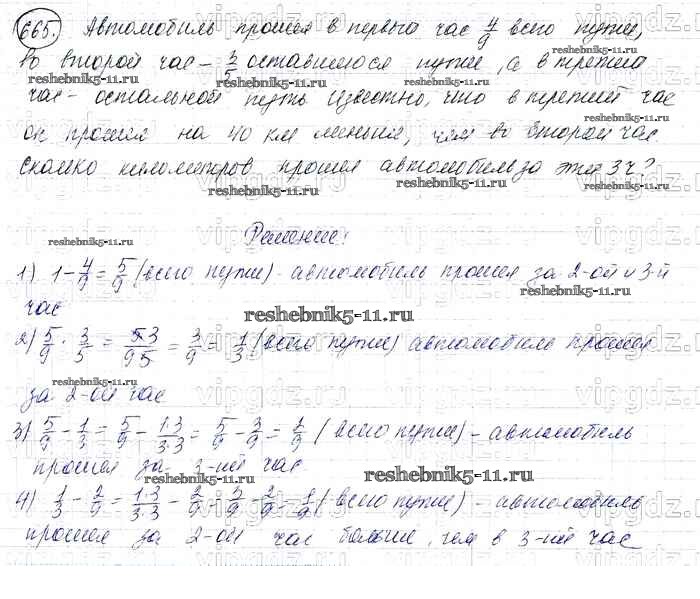 665. Автомобиль прошел в первый час 4/9 всего пути,
во второй час - 3/5 оставшегося пути, а в третий
reshebnik5-11.ru reshebnik5-11.ru reshebnik5-11.ru
час - остальной путь. Известно, что в третий час
он прошел на 40 км меньше, чем во второй час.
сколько километров прошел автомобиль за эти 3ч?
reshebnik5-11.ru reshebnik5-11.ru reshebnik5-11.ru
Решение:
reshebnik5-11.ru
1) 1-4/9=5/9 (всего пути) - автомобиль прошел за 2-ой и 3-й
час
reshebnik5-11.ru
2) 5/9·3/5=5·3/9·5=3/9=1/3 (всего пути) автомобиль прошел
reshebnik5-11.ru
за 2-ой час
3) 5/9-1/3=5/9-1·3/3·3=5/9-3/9=2/9 (всего пути) - автомобиль
прошел за 3-ий час
reshebnik5-11.ru
4) 1/3-2/9=1·3/3·3-2/9=3/9-2/9=1/9 (всего пути) - автомобиль
прошел за 2-ой час больше, чем в 3-ий час
vipgdz.ru